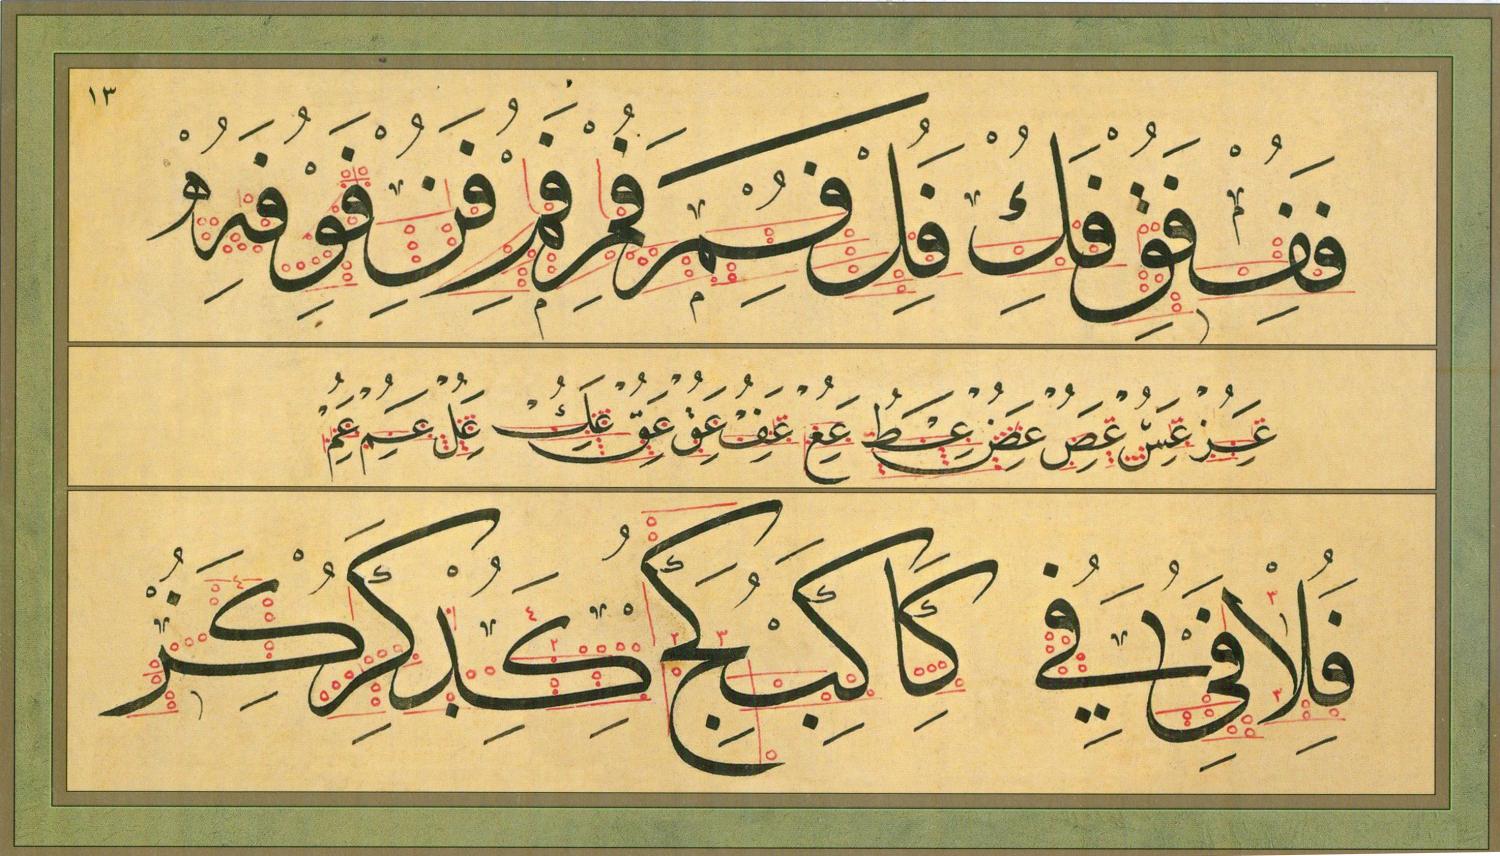 ١٣
فف فق فك فل فم فم فم فن فو فه
عر عس عص عط عع عف عق عق عك عل عم عم
فلا فى في كا كب كج كد كر كز